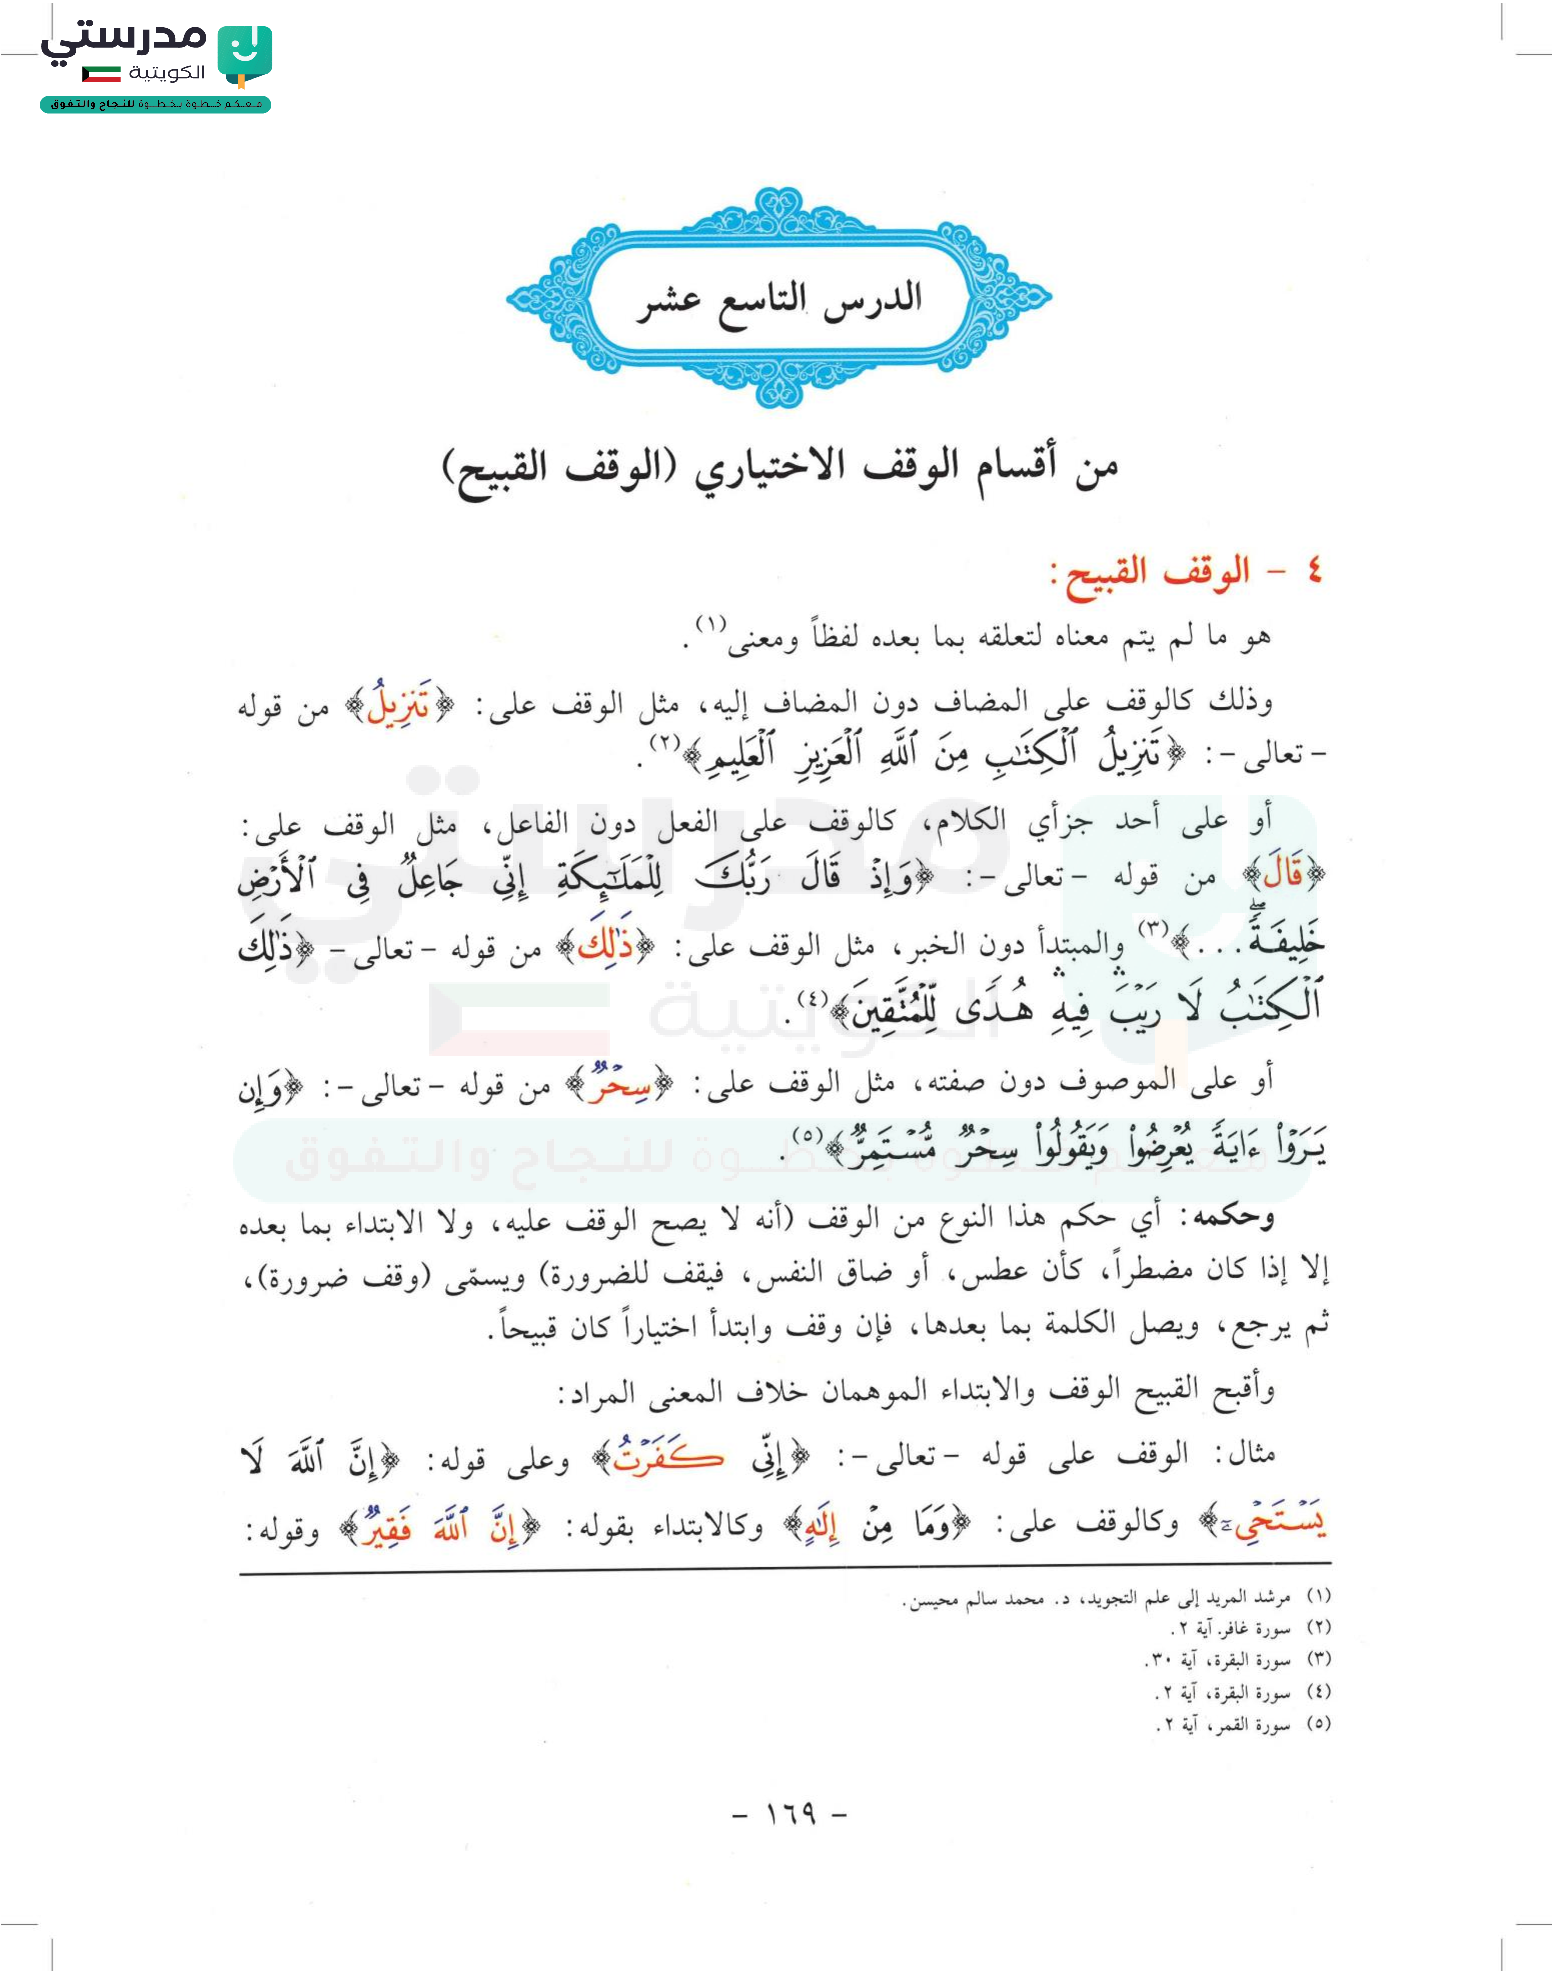 مدرستي
الكويتية
معكم خطوة بخطوة للنجاح والتفوق
الدرس التاسع عشر
من أقسام الوقف الاختياري (الوقف القبيح)
٤ - الوقف القبيح:
هو ما لم يتم معناه لتعلقه بما بعده لفظاً ومعنى(١).
وذلك كالوقف على المضاف دون المضاف إليه، مثل الوقف على: ﴿تَنزِيلُ﴾ من قوله
- تعالى -: ﴿تَنزِيلُ ٱلْكِتَٰبِ مِنَ ٱللَّهِ ٱلْعَزِيزِ ٱلْعَلِيمِ﴾(٢).
أو على أحد جزأي الكلام، كالوقف على الفعل دون الفاعل، مثل الوقف على:
﴿قَالَ﴾ من قوله - تعالى -: ﴿وَإِذْ قَالَ رَبُّكَ لِلْمَلَٰٓئِكَةِ إِنِّي جَاعِلٌ فِي ٱلْأَرْضِ
خَلِيفَةًۖ...﴾(٣) والمبتدأ دون الخبر، مثل الوقف على: ﴿ذَٰلِكَ﴾ من قوله - تعالى - ﴿ذَٰلِكَ
ٱلْكِتَٰبُ لَا رَيْبَۛ فِيهِۛ هُدًى لِّلْمُتَّقِينَ﴾(٤).
أو على الموصوف دون صفته، مثل الوقف على: ﴿سِحْرٌ﴾ من قوله - تعالى -: ﴿وَإِن
يَرَوْا۟ ءَايَةً يُعْرِضُوا۟ وَيَقُولُوا۟ سِحْرٌ مُّسْتَمِرٌّ﴾(٥).
وحكمه: أي حكم هذا النوع من الوقف (أنه لا يصح الوقف عليه، ولا الابتداء بما بعده
إلا إذا كان مضطراً، كأن عطس، أو ضاق النفس، فيقف للضرورة) ويسمّى (وقف ضرورة)،
ثم يرجع، ويصل الكلمة بما بعدها، فإن وقف وابتدأ اختياراً كان قبيحاً.
وأقبح القبيح الوقف والابتداء الموهمان خلاف المعنى المراد:
مثال: الوقف على قوله - تعالى -: ﴿إِنِّي كَفَرْتُ﴾ وعلى قوله: ﴿إِنَّ ٱللَّهَ لَا
يَسْتَحْيِۦٓ﴾ وكالوقف على: ﴿وَمَا مِنْ إِلَٰهٍ﴾ وكالابتداء بقوله: ﴿إِنَّ ٱللَّهَ فَقِيرٌ﴾ وقوله:
(١) مرشد المريد إلى علم التجويد، د. محمد سالم محيسن.
(٢) سورة غافر. آية ٢.
(٣) سورة البقرة، آية ٣٠.
(٤) سورة البقرة، آية ٢.
(٥) سورة القمر، آية ٢.
- ١٦٩ -